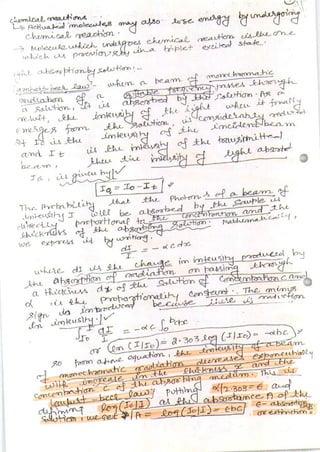 chemical reactions :-
→ Activated molecules may also lose energy by undergoing
chemical reaction.
→ Molecule which undergoes chemical reaction is the one
which is previously in a triplet excited state.
Light absorption by solution :-
Lambert-beer law: when a beam of monochromatic
radiation of suitable frequency passes through
a solution, it is absorbed by the solution. As a
result, the intensity of the light when it finally
emerges from the solution, is considerably reduced
If Io is the intensity of the incident beam
and It is the intensity of the transmitted
beam, then the intensity of light absorbed
Ia, is given by
Ia = Io - It
The Probability that the Photons of a beam of
intensity I will be absorbed by the sample is
directly proportional to the concentration and the
thickness of the absorbing solution. Mathematically,
we express it by writing.
dI/I = -αcdx
where dI is the change in intensity produced by
the absorption of radiation on passing through
a thickness dx of the solution of concentration c and
α is the Proportionality constant. The minus
sign is introduced because there is reduction
in intensity.
∫ dI/I = -αc ∫ dx
or ln (I/Io) = 2.303 log (I/Io) = -αbc
so from above equation, the intensity of a beam
of monochromatic radiation decreases exponentially
with increase in the thickness x and the
concentration c of the absorbing medium. This is
Lambert-beer law. Putting α/2.303 = ε and
defining log (Io/I) as the absorbance A of the
solution, we get A = log (Io/I) = εbc